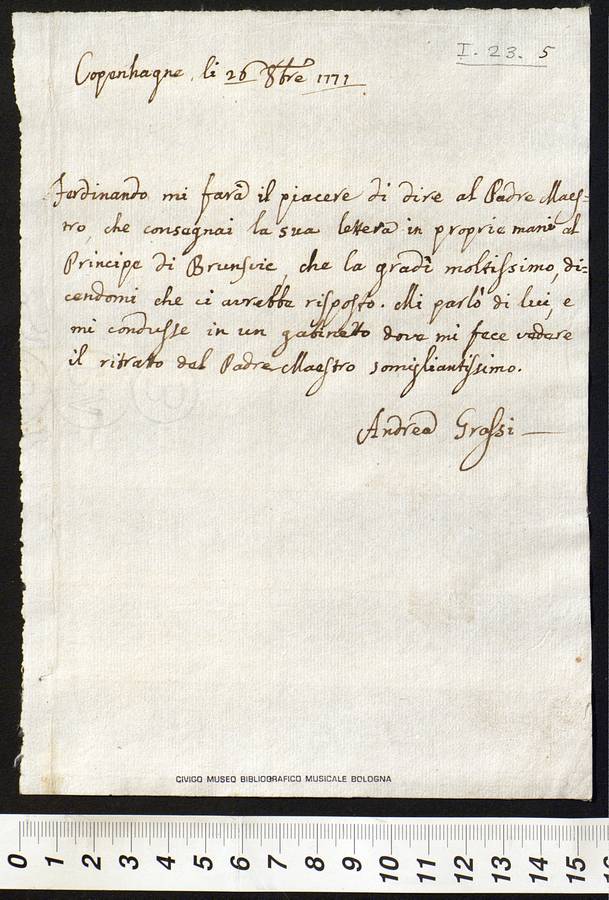 I. 23. 5
Copenhagne, li 26 8bre 1771
Ferdinando mi farà il piacere di dire al Padre Maes-
tro, che consegnai la sua lettera in proprie mani al
Principe di Brunsvic, che la gradì moltissimo, di=
cendomi che ci avrebbe risposto. Mi parlò di lui, e
mi condusse in un gabinetto dove mi fece vedere
il ritratto del Padre Maestro somigliantissimo.
Andrea Grassi
CIVICO MUSEO BIBLIOGRAFICO MUSICALE BOLOGNA
0 1 2 3 4 5 6 7 8 9 10 11 12 13 14 15